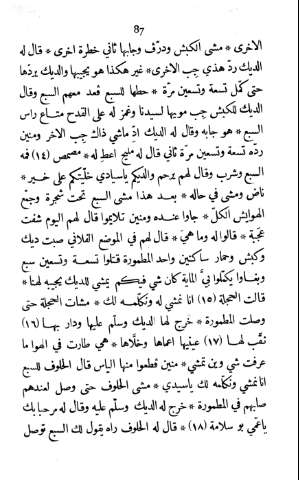 87
الاخرى * مشى الكبش ودرّف وجابها ثاني خطرة اخرى * قال له
الديك ردّ هذي جب الاخرى * غير هكذا هو يجيبها والديك يردّها
حتى كمّل تسعة وتسعين مرّة * حطها للسبع فقد معهم السبع وقال
للديك للكبش جب مويها لسيدنا وغمز له على القدح متاع راس
السبع * هو جابه وقال له الديك ادّ ماشي ذاك جب الاخر ومنين
ردّه تسعة وتسعين مرّة ثاني قال له مليح اعطِ له * مصمص (١٤) فمه
السبع وشرب وقال لهم يرحم والديكم ياسادي خلّيتكم على خير *
ناض ومشى في حاله * بعد هذا مشى السبع تحت شجرة وجمّع
الهوايش الكلّ * جاوا عنده ومنين تلايموا قال لهم اليوم شفت
عجبة * قالوا له وما هي * قال لهم في الموضع الفلاني صبت ديك
وكبش وحمار ساكنين واحد المطمورة قتلوا تسعة وتسعين سبع
وبغاوا يكمّلوا بيَّ المابة كان شي فيكم يمشي للديك يجيبه لهنا *
قالت الحجلة (١٥) انا نمشي له ونكلّمه لك * مشات الحجلة حتى
وصلت المطمورة * خرج لها الديك وسلّم عليها ودار بها (١٦)
نقّب لها (١٧) عينيها اعماها وخلّاها * هي طارت في الهوا ما
عرفت شي وين تمشي * منين قطعوا منها الياس قال الحلوف للسبع
انا نمشي ونكلّمه لك ياسيدي * مشى الحلوف حتى وصل لعندهم
صابهم في المطمورة * خرج له الديك وسلّم عليه وقال له مرحبا بك
ياعمّي بو سلامة (١٨) * قال له الحلوف راه يقول لك السبع توصل